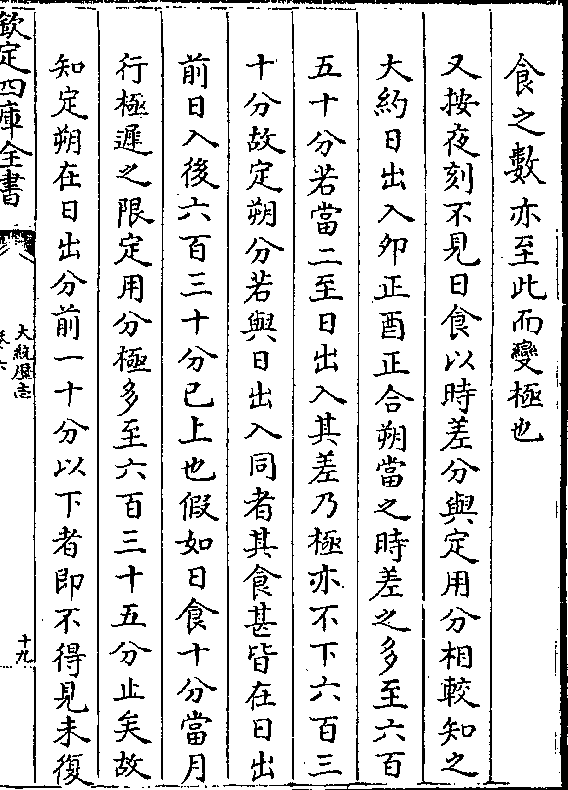 食之數亦至此而變極也
又按夜刻不見日食以時差分與定用分相較知之
大約日出入夘正酉正合朔當之時差之多至六百
五十分若當二至日出入其差乃極亦不下六百三
十分故定朔分若與日出入同者其食甚皆在日出
前日入後六百三十分已上也假如日食十分當月
行極遲之限定用分極多至六百三十五分止矣故
知定朔在日出分前一十分以下者即不得見未復
欽定四庫全書
大統歷志
卷六
十九